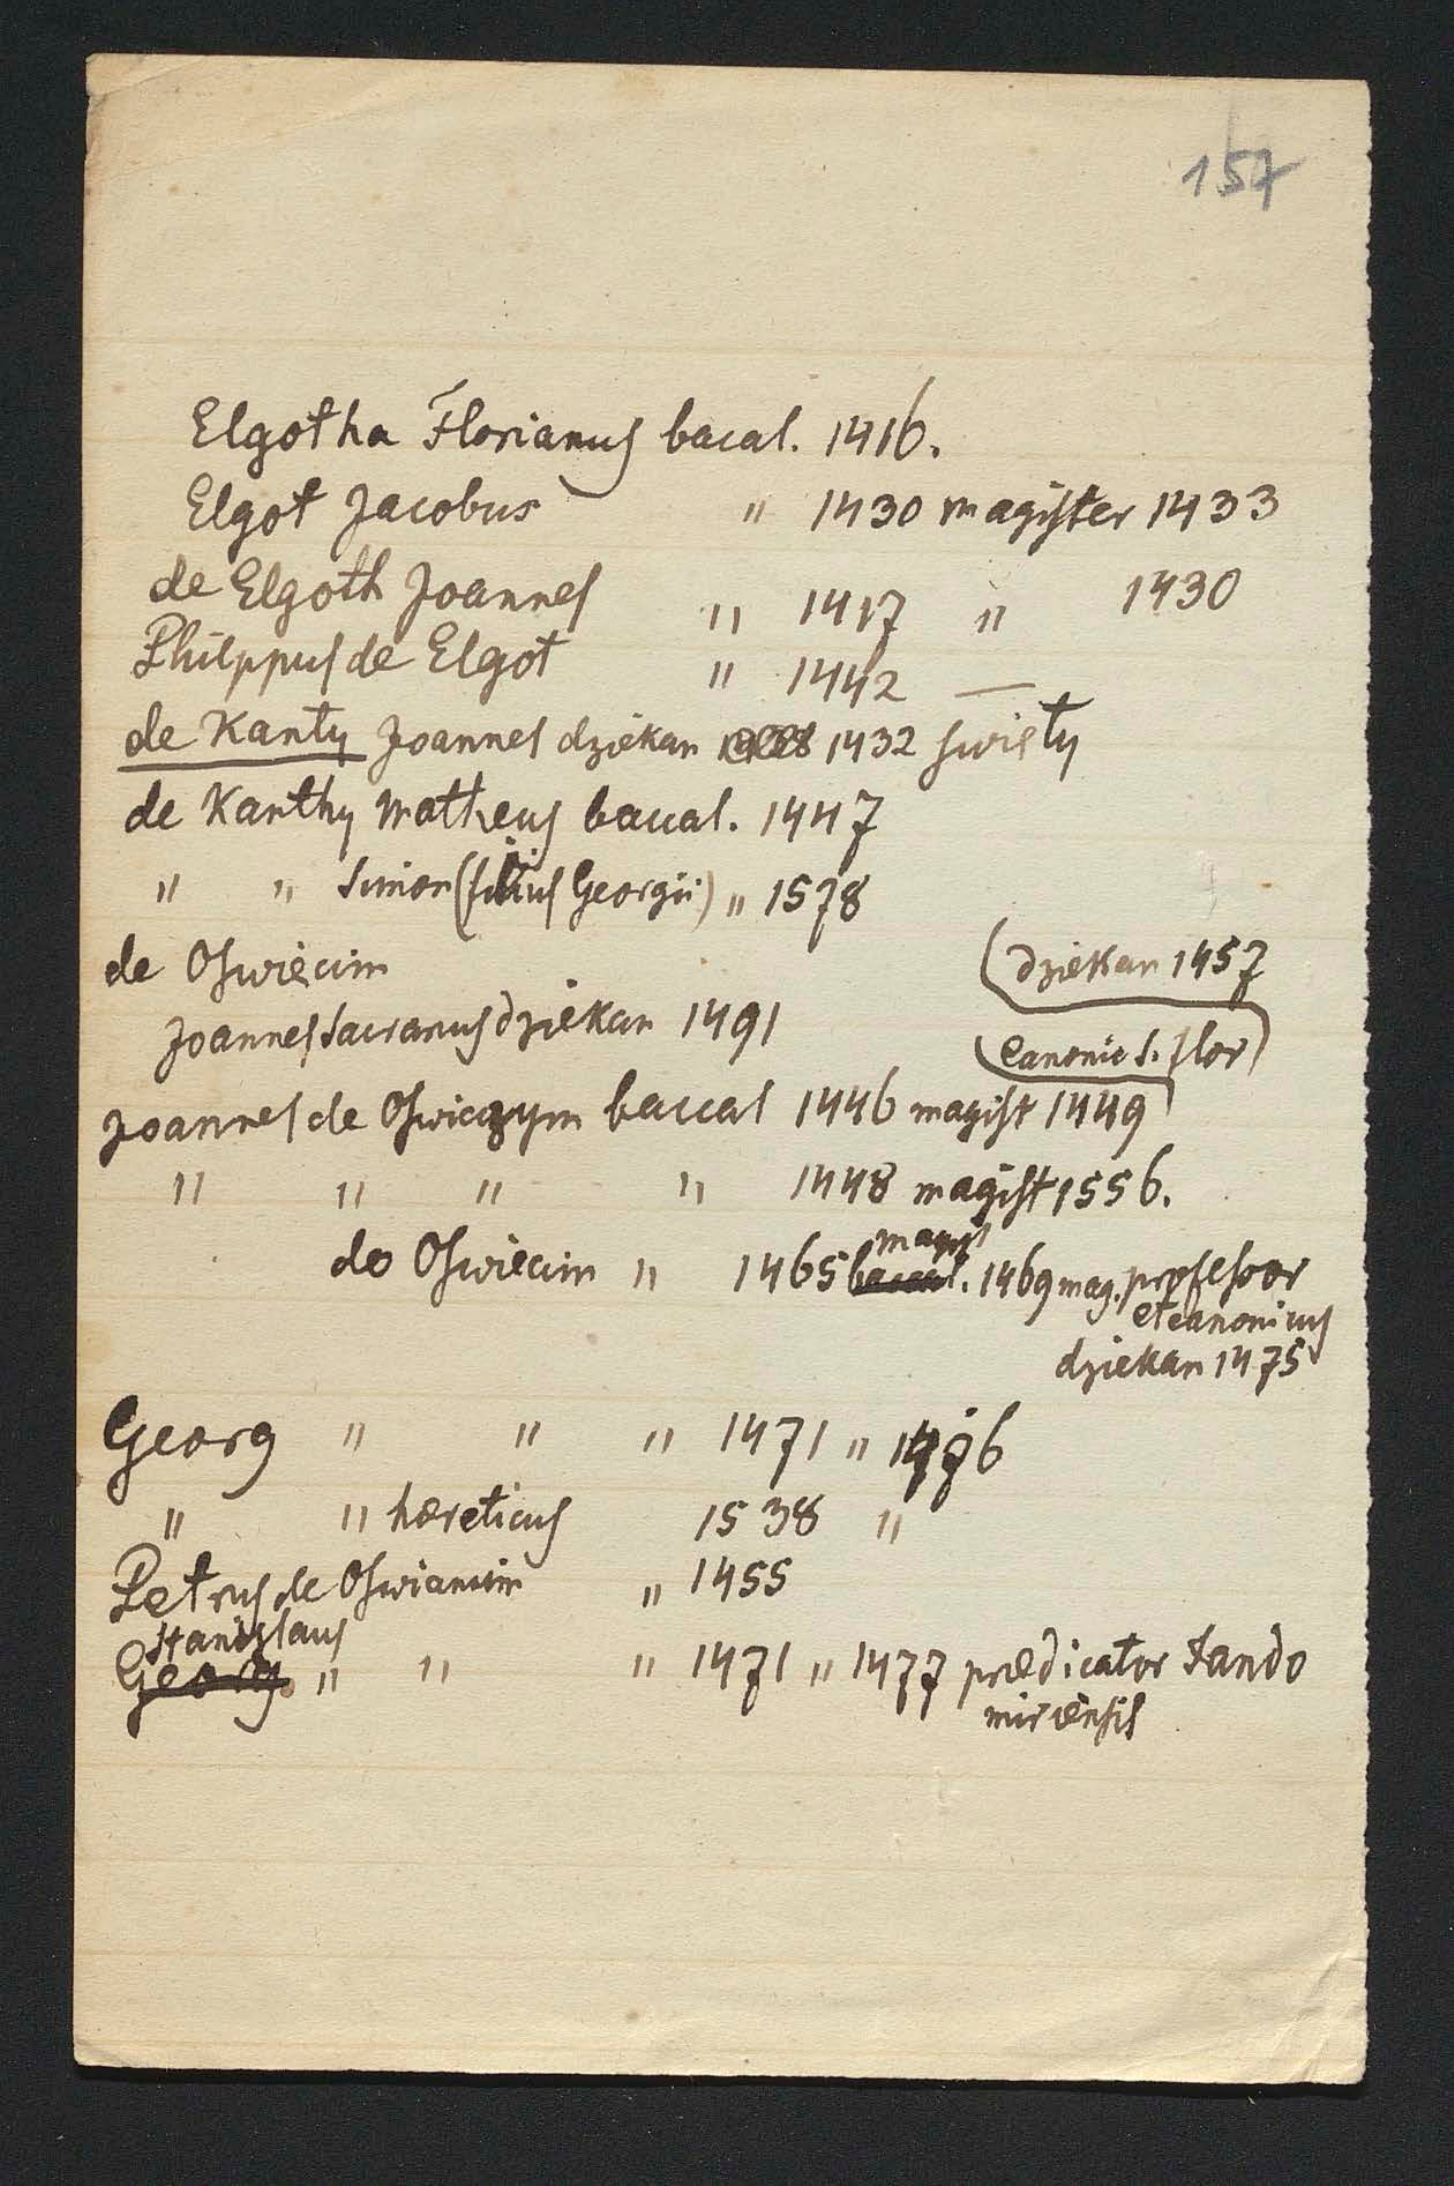 157
Elgotha Florianus bacal. 1416.
Elgot Jacobus " 1430 magister 1433
de Elgoth Joannes " 1417 " 1430
Philppus de Elgot " 1442 —
de Kanty Joannes dziekan 1432 swięty
de Kanthy Matheus baccal. 1447
" " Simon (filius Georgii) " 1578
de Oswięcim
(dziekan 1457
Joannes Sacranus dziekan 1491
(Canonic S. Flor)
Joannes de Oswięczym baccal 1446 magist 1449
" " " " 1448 magist 1556.
de Oswięcim " 1465 baccal. magist 1469 mag. professor
et canonicus
dziekan 1475
Georg " " " 1471 " 1476
" " hæreticus 1538 "
Petrus de Oswiancim " 1455
Stanislaus
Georg. " " " 1471 " 1477 prædicator Sando
miriensis